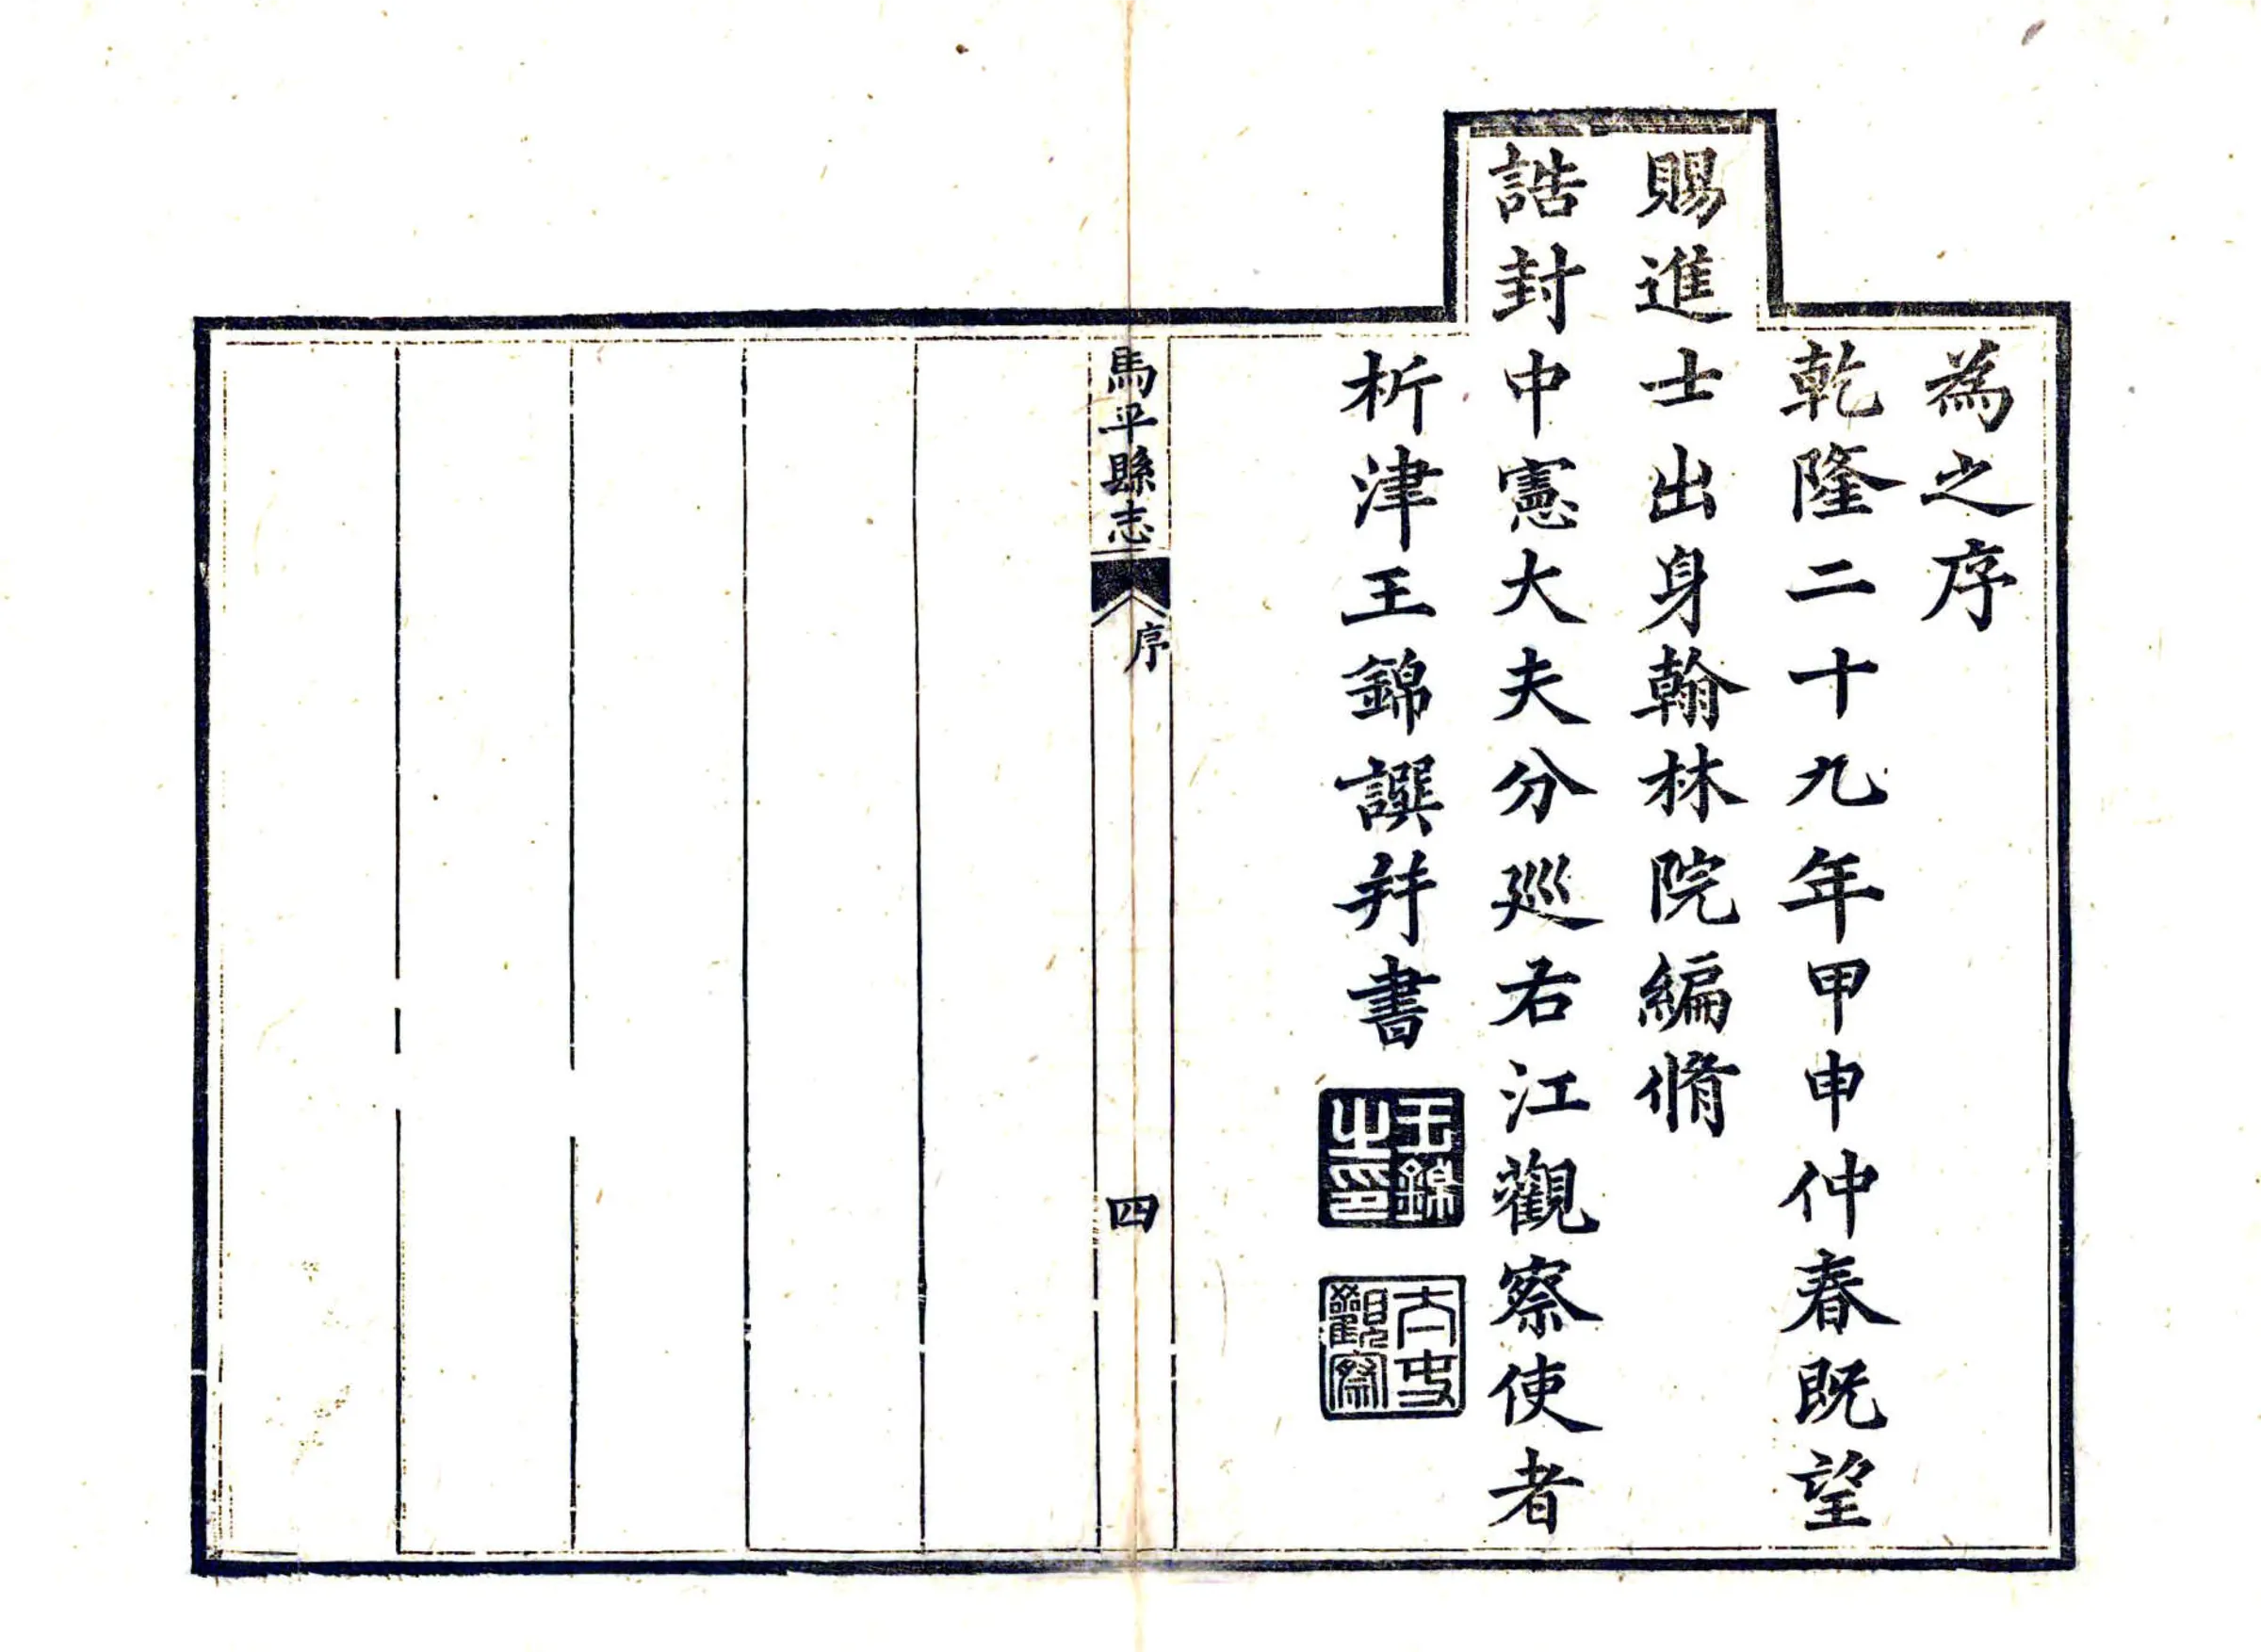 為之序
乾隆二十九年甲申仲春既望
賜進士出身翰林院編脩
誥封中憲大夫分廵右江觀察使者
析津王錦譔幷書
王錦之印
太史觀察
馬平縣志
序
四